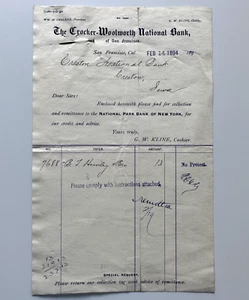 WM. H. CROCKER, President
G. W. KLINE, Cashier.
The Crocker-Woolworth National Bank,
of San Francisco.
San Francisco, Cal. FEB 14 1894 189
Creston National Bank
Creston,
Iowa
Dear Sirs:
Enclosed herewith please find for collection
and remittance to the NATIONAL PARK BANK OF NEW YORK, for
our credit and advice.
Yours truly,
G. W. KLINE, Cashier.
NO. PAYER. AMOUNT.
7688 13 No Protest.
Please comply with instructions attached.
Remitted
SPECIAL REQUEST.
Please return our collection